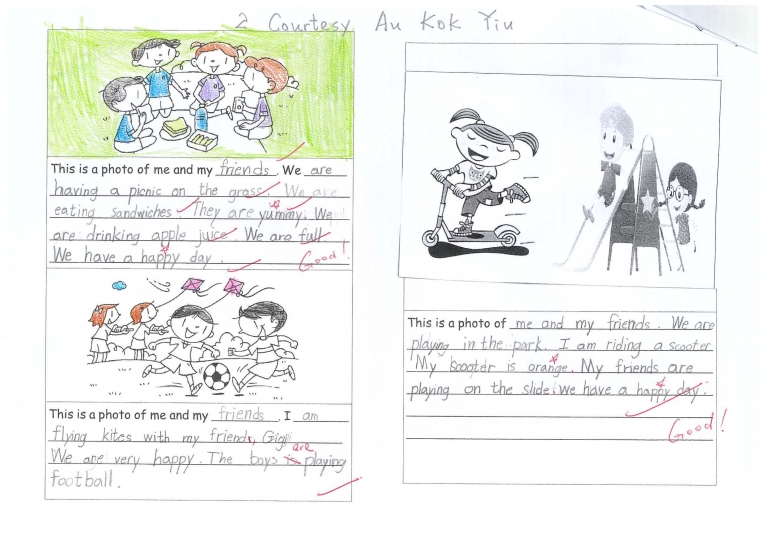 2 Courtesy Au Kok Yiu
This is a photo of me and my friends. We are
having a picnic on the grass. We are
eating sandwiches. They are yummy. We
are drinking apple juice. We are full.
We have a happy day.
Good!
This is a photo of me and my friends. I am
flying kites with my friend, Gigi.
are
We are very happy. The boys is playing
football.
This is a photo of me and my friends. We are
playing in the park. I am riding a scooter.
My scooter is orange. My friends are
playing on the slide. We have a happy day.
Good!